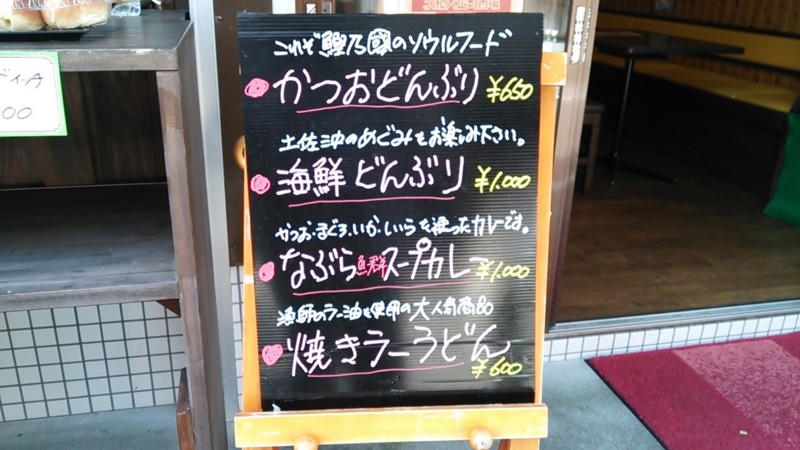 これぞ鰹乃國のソウルフード
かつおどんぶり ¥650
土佐沖のめぐみをお楽しみ下さい。
海鮮どんぶり ¥1.000
かつお・まぐろ・いか・いくらを使ったカレーです。
なぶら魚群スープカレー ¥1.000
漁師のラー油を使用の大人気商品
焼きラーうどん ¥600
ドイッチ
00